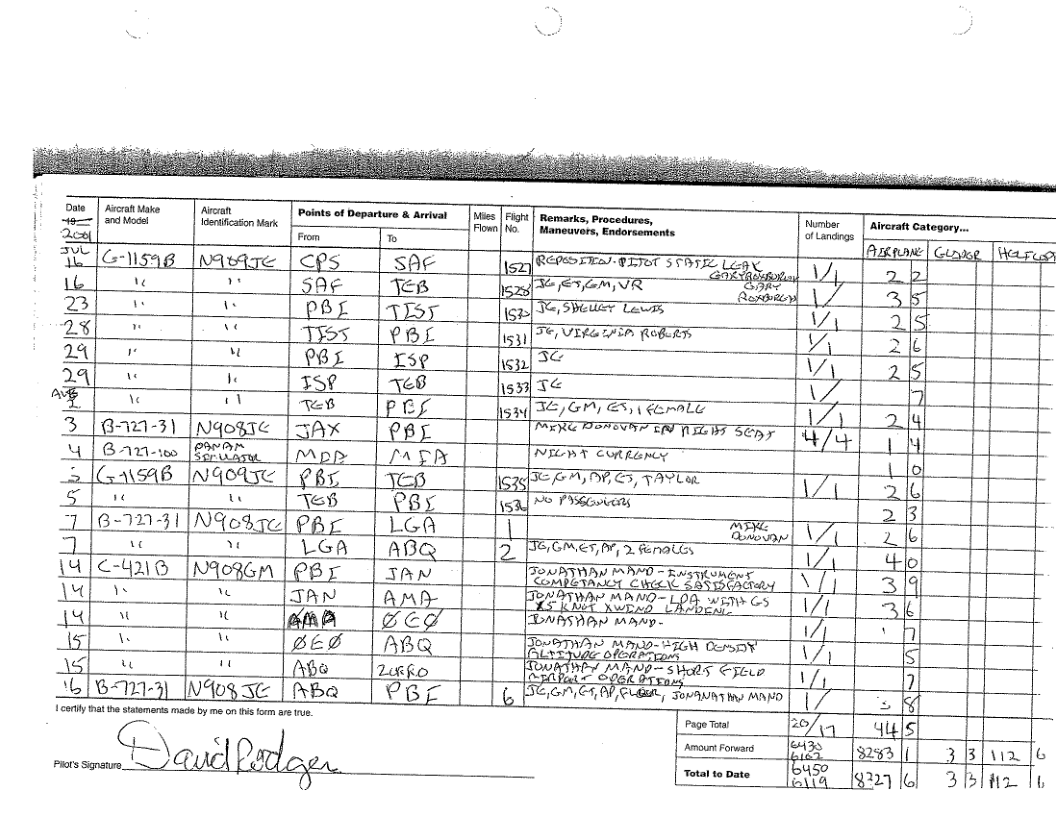 Date Aircraft Make and Model Aircraft Identification Mark Points of Departure & Arrival Miles Flown Flight No. Remarks, Procedures, Maneuvers, Endorsements Number of Landings Aircraft Category...
19 2001 From To AIRPLANE GLIDER
JUL 16 G-1159B N909JE CPS SAF 1527 REPOSITION-PITOT STATIC LEAK GARY ROXBURGH 1/1 2 2
16 " " SAF TEB 1528 JE, ET, GM, VR GARY ROXBURGH 1/ 3 5
23 " " PBI TIST JE, SHELLEY LEWIS 1/1 2 5
28 " " TIST PBI 1531 JE, VIRGINIA ROBERTS 1/1 2 6
29 " " PBI ISP 1532 JE 1/1 2 5
29 " " ISP TEB 1533 JE 1/ 7
AUG " " TEB PBI 1534 JE, GM, ET, 1 FEMALE 1/1 2 4
3 B-727-31 N908JE JAX PBI MIKE DONOVAN IN RIGHT SEAT 4/4 1 4
4 B-727-100 PANAM SIMULATOR MIA MIA NIGHT CURRENCY 1 0
G-1159B N909JE PBI TEB 1535 JE, GM, AP, ET, TAYLOR 1/1 2 6
5 " " TEB PBI 1536 NO PASSENGERS 2 3
7 B-727-31 N908JE PBI LGA 1 MIKE DONOVAN 1/1 2 6
7 " " LGA ABQ 2 JE, GM, ET, AP, 2 FEMALES 1/1 4 0
14 C-421B N908GM PBI JAN JONATHAN MANO-INSTRUMENT COMPETANCY CHECK SATISFACTORY 1/1 3 9
14 " " JAN AMA JONATHAN MANO-LDA WITH GS 25 KNOT XWIND LANDING 1/1 3 6
14 " " AMA ØEØ JONATHAN MANO- 1/1 7
15 " " ØEØ ABQ JONATHAN MANO-HIGH DENSITY ALTITUDE OPERATIONS 1/1 5
15 " " ABQ ZORRO JONATHAN MANO-SHORT FIELD AIRPORT OPERATIONS 1/1 7
16 B-727-31 N908JE ABQ PBI 6 JE, GM, ET, AP, JONANATHAN MANO 1/ 3 8
I certify that the statements made by me on this form are true.
Page Total 20/17 44 5
Amount Forward 6430 6102 8283 1 3 3 112 6
Pilot's Signature David Rodgers
Total to Date 6450 6119 8327 6 3 3 112 6